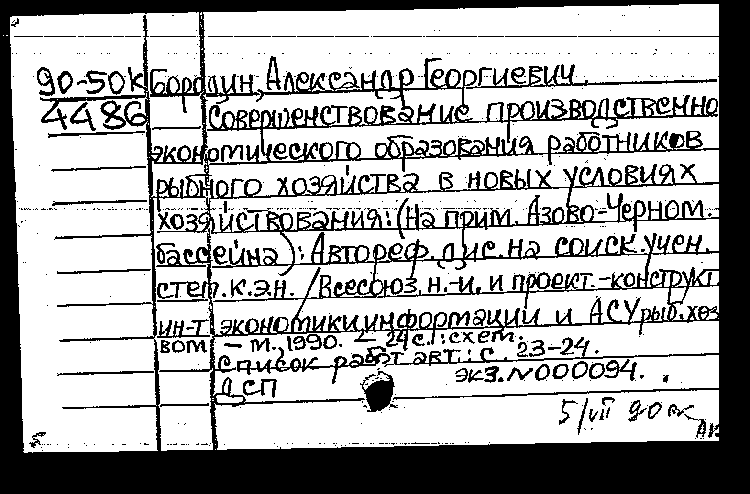 90-50к Бородин, Александр Георгиевич.
4486 Совершенствование производственно
экономического образования работников
рыбного хозяйства в новых условиях
хозяйствования: (На прим. Азово-Черном.
бассейна): Автореф. дис. на соиск. учен.
степ. к.э.н. / Всесоюз. н.-и. и проект.-конструкт.
ин-т экономики, информации и АСУ рыб. хоз
вом — М., 1990. — 24 с.: схем.
Список работ авт.: с. 23-24.
ДСП экз. N000094.
5/VII 90